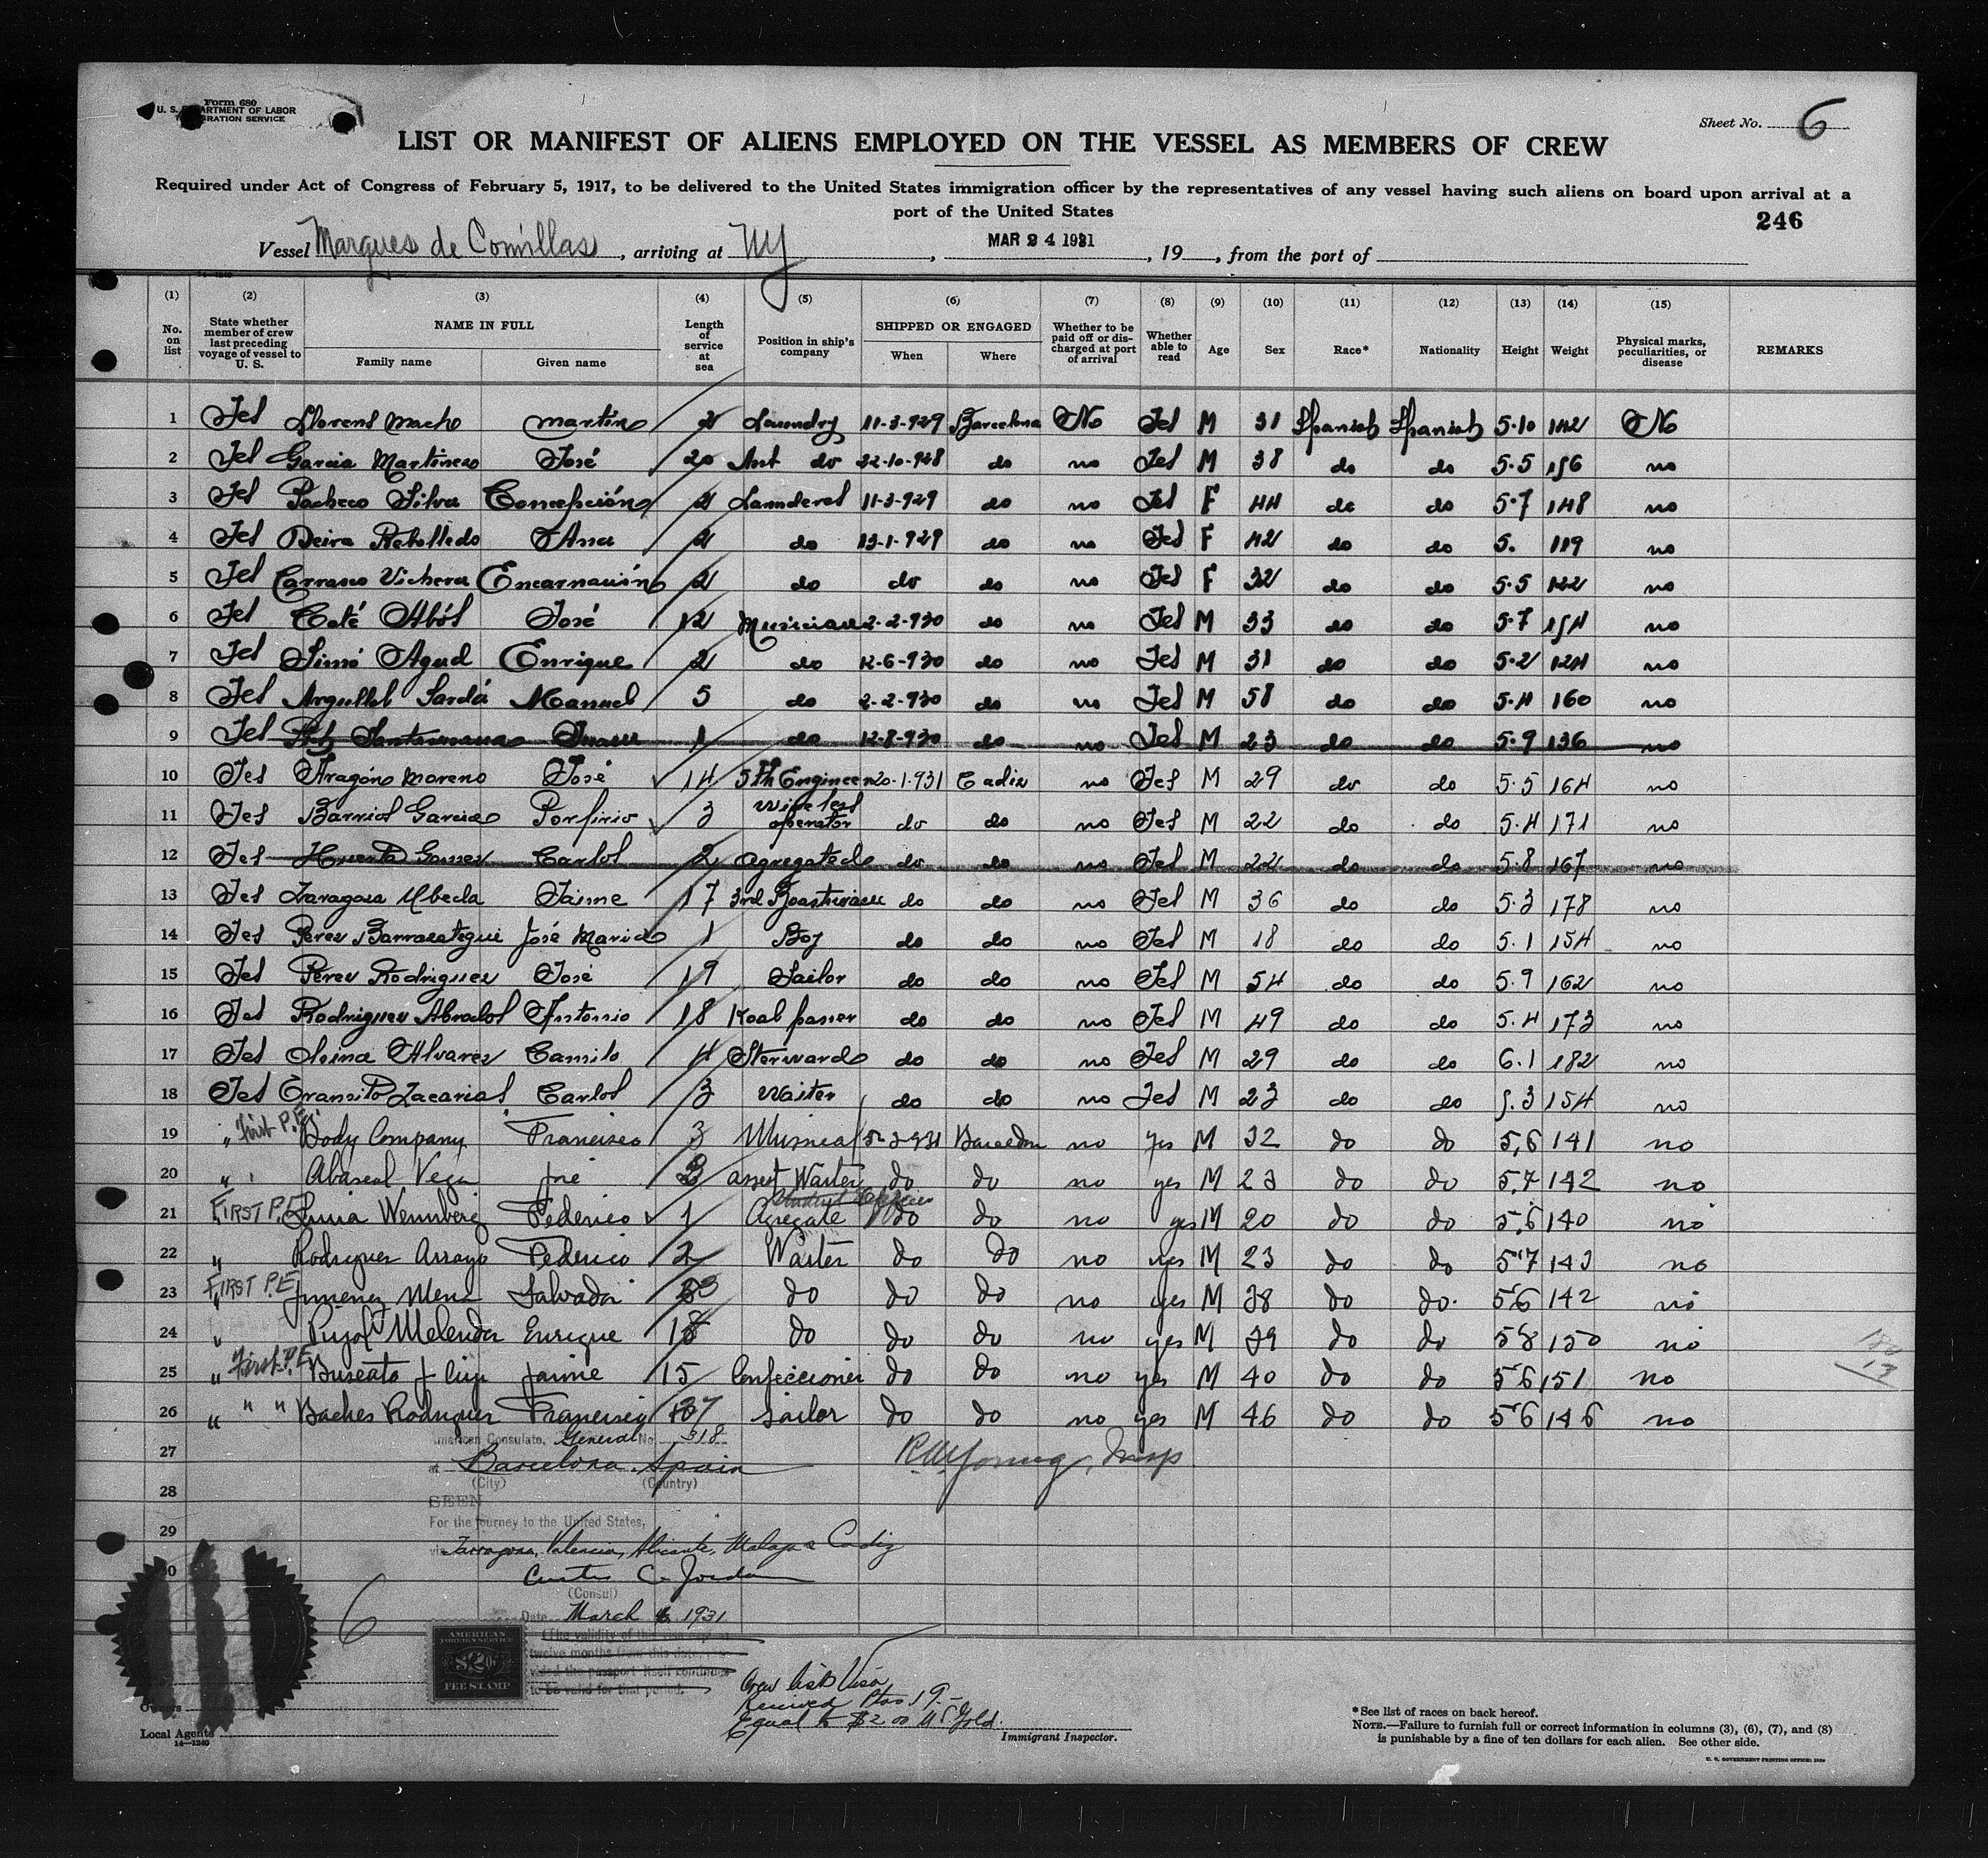 Form 680
U. S. DEPARTMENT OF LABOR
IMMIGRATION SERVICE
Sheet No. 6
LIST OR MANIFEST OF ALIENS EMPLOYED ON THE VESSEL AS MEMBERS OF CREW
Required under Act of Congress of February 5, 1917, to be delivered to the United States immigration officer by the representatives of any vessel having such aliens on board upon arrival at a
port of the United States
246
Vessel Marques de Comillas, arriving at NY, MAR 24 1931, 19 , from the port of
(1) (2) (3) (4) (5) (6) (7) (8) (9) (10) (11) (12) (13) (14) (15)
No. on list State whether member of crew last preceding voyage of vessel to U. S. NAME IN FULL Family name Given name Length of service at sea Position in ship's company SHIPPED OR ENGAGED When Where Whether to be paid off or discharged at port of arrival Whether able to read Age Sex Race* Nationality Height Weight Physical marks, peculiarities, or disease REMARKS
1 Yes Llorens Macho Martin 2 Laundry 11-3-929 Barcelona No Yes M 31 Spanish Spanish 5·10 142 No
2 Yes Garcia Martinez José 20 Ast do 22-10-928 do no Yes M 38 do do 5·5 156 no
3 Yes Pacheco Silva Concepción 2 Launderes 11-3-929 do no Yes F 44 do do 5·7 148 no
4 Yes Neira Rebolledo Ana 2 do 13-1-929 do no Yes F 42 do do 5. 119 no
5 Yes Carrasco Encarnación 2 do do do no Yes F 32 do do 5·5 122 no
6 Yes Coté José 12 Musician 2-2-930 do no Yes M 33 do do 5·7 154 no
7 Yes Simó Agud Enrique 2 do 12-6-930 do no Yes M 31 do do 5·2 124 no
8 Yes Argullol Sardá Manuel 5 do 2-2-930 do no Yes M 58 do do 5·4 160 no
9 Yes Santamaria Juan 1 do 12-8-930 do no Yes M 23 do do 5·9 136 no
10 Yes Aragón Moreno José 14 5th Engineer 20-1-931 Cadiz no Yes M 29 do do 5·5 164 no
11 Yes Barrios Garcia Porfirio 3 wireless operator do do no Yes M 22 do do 5·4 171 no
12 Yes Huerta Gomez Carlos 2 agregatedo do do no Yes M 22 do do 5·8 167 no
13 Yes Zaragoza Ubeda Jaime 17 3rd Boastwain do do no Yes M 36 do do 5·3 178 no
14 Yes Perez Barrazategui José Maria 1 Boy do do no Yes M 18 do do 5·1 154 no
15 Yes Perez Rodriguez José 19 Sailor do do no Yes M 54 do do 5·9 162 no
16 Yes Rodriguez Antonio 18 Koal passer do do no Yes M 49 do do 5·4 173 no
17 Yes Alvarez Camilo 4 Sterwards do do no Yes M 29 do do 6·1 182 no
18 Yes Transito Zacarias Carlos 3 Waiter do do no Yes M 23 do do 5.3 154 no
19 " First P.E. Body Company Francisco 3 5-3-931 Barcelona no yes M 32 do do 5,6 141 no
20 " Abascal Vega José 3 assist Waiter do do no yes M 23 do do 5,7 142 no
21 " FIRST P.E. Wennberg Federico 1 Agregate do do no yes M 20 do do 5,6 140 no
22 " Rodriguez Arroyo Federico 2 Waiter do do no yes M 23 do do 5'7 143 no
23 " FIRST P.E. Jimenez Mena Salvador do do do no yes M 38 do do 5'6 142 no
24 " Pujol Melendez Enrique 18 do do do no yes M 39 do do 5'8 150 no
25 " First P.E. Jaime 15 Confeccioner do do no yes M 40 do do 5'6 151 no
26 " " " Baches Rodriguez Francisco sailor do do no yes M 46 do do 5'6 146 no
27
28
29
30
American Consulate, General No. 318
at Barcelona, Spain
(City) (Country)
R.W. Young, Insp
SEEN
For the journey to the United States,
via Tarragona, Valencia, Alicante, Malaga Cadiz
Curtis C. Jordan
(Consul)
6
Date March 6, 1931
(The validity of this visa
twelve months from this date, provided the passport itself continues
to be valid for that period.
AMERICAN
FOREIGN SERVICE
FEE STAMP
Crew list Visa
Received Ptas 19.-
Equal to $2.00 US Gold.
Owners
Local Agents
14—1240
Immigrant Inspector.
*See list of races on back hereof.
NOTE.—Failure to furnish full or correct information in columns (3), (6), (7), and (8)
is punishable by a fine of ten dollars for each alien. See other side.
U. S. GOVERNMENT PRINTING OFFICE